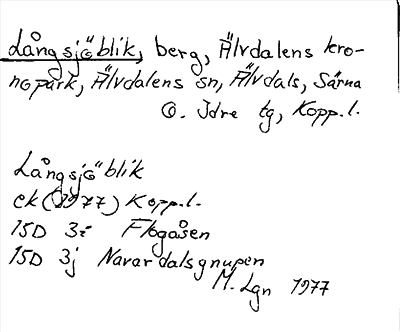 Långsjöblik, berg, Älvdalens kro-
nopark, Älvdalens sn, Älvdals, Särna
o. Idre tg, Kopp.l.
Långsjöblik
ek (1977) Kopp.l.
15D 3i Flogåsen
15D 3j Navardalsgnupen
M. Lgn 1977